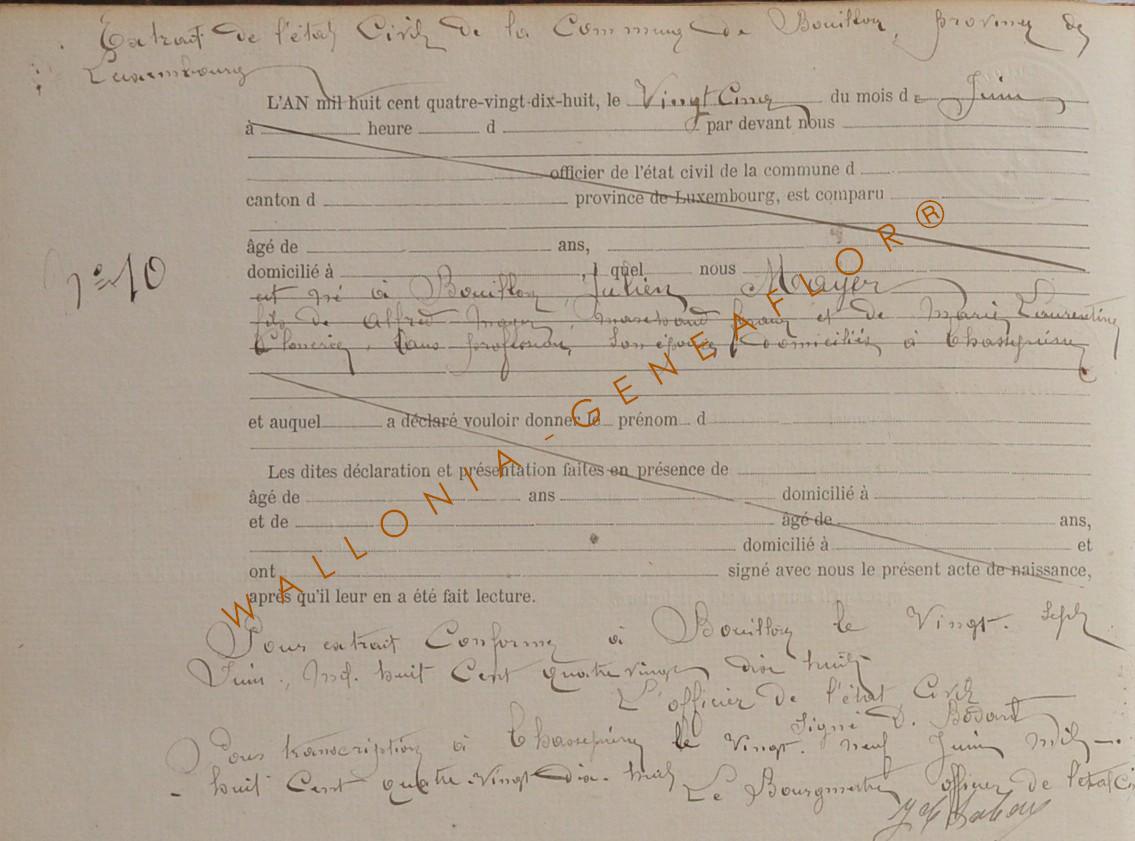 Extrait de l'état Civil de la Commune de Bouillon, province de
Luxembourg
L'AN mil huit cent quatre-vingt-dix-huit, le Vingt Cinq du mois de Juin
à heure d par devant nous
officier de l'état civil de la commune d
canton d province de Luxembourg, est comparu
âgé de ans,
domicilié à , l quel nous
n° 10
est né à Bouillon, Julien Mayer
fils de Alfred Mayer, marchand et de Marie Laurentine
sans profession, son épouse, domiciliés à Chassepierre
et auquel a déclaré vouloir donner le prénom d
Les dites déclaration et présentation faites en présence de
âgé de ans domicilié à
et de âgé de ans,
domicilié à et
ont signé avec nous le présent acte de naissance,
après qu'il leur en a été fait lecture.
WALLONIA - GENEAFLOR ®
Pour extrait Conforme à Bouillon le Vingt. Sept
Juin, Mil. huit Cent quatre vingt dix huit
L'officier de l'état Civil
Signé D. Bodart
Pour transcription à Chassepierre le Vingt. neuf Juin Mil
huit Cent quatre-Vingt-dix-huit
Le Bourgmestre officier de l'état Ci